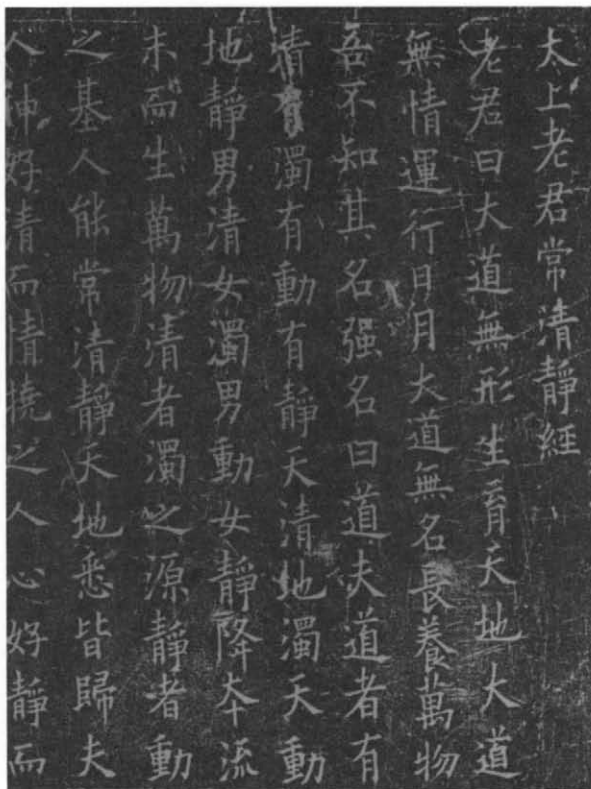 太上老君常清靜經
老君曰大道無形生育天地大道
無情運行日月大道無名長養萬物
吾不知其名强名曰道夫道者有
清有濁有動有靜天清地濁天動
地靜男清女濁男動女靜降夲流
末而生萬物清者濁之源靜者動
之基人能常清靜天地悉皆歸夫
人神好清而情撓之人心好靜而